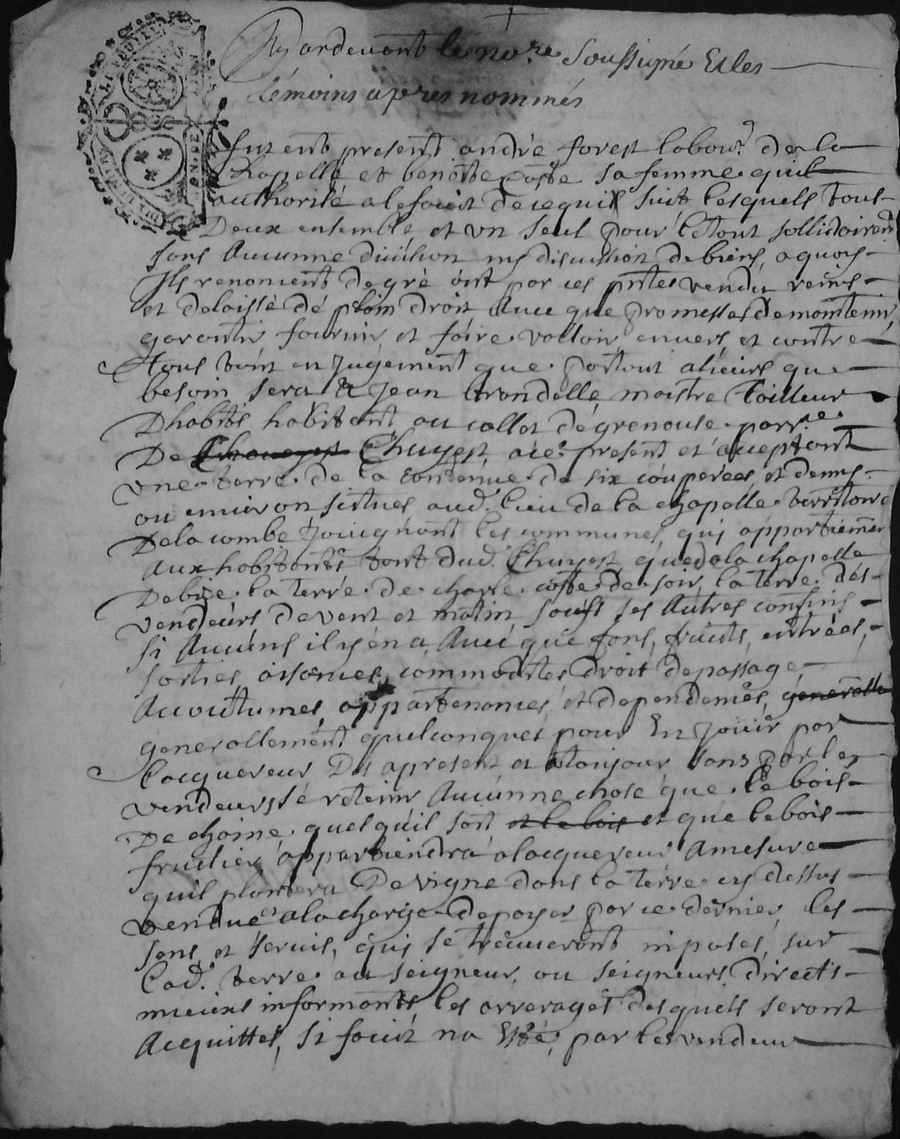 Pardevant le no.re Soussigné Et les
témoins apres nommés
furent present andré forest labour.r de la
Chapelle et benoite Coste sa femme quil
authorité a le fait de ce quil suit lesquels tous
Deux ensemble et un seul pour le tout sollidairem.t
sans Aucunne division ny discution de biens, a quoy
Ils renoncent de gré ont par ces pntes vendu remis
et delaissé de plain droit Avec que promesses de maintenir
garentir fournir et faire valloir envers et contre
tous tant en Jugement que partout alieurs que
besoin sera a Jean Arondelle maitre tailleur
D'habits habitant au collet de grenouse parr.e
De Chuyest Chuyest, ice present et aceptant
une terre de la contenue de six couperées et demis
ou environ sittues aud. lieu de la chapelle territoire
De la combe Joucignant les communes, qui appartiennent
Aux habitants tant dud. Chuyest, que de la chapelle
De bize la terre de charle coste de soir, la terre des
vendeurs de vent et matin sauft ses Autres confins
si Aucuns il y en a, Avec que fons, fruits, entrées,
sorties aisances, commodites droit de passage,
Accoutumes, appartenances, et dependences, generalle
generallement quelconques pour En Jouir par
l'acquereur Des apresent et a toujour sans par les
vendeurs sé retenir Aucunne chose que le bois
De chaine quelquil soit et le bois et que le bois
fruitier appartiendra a l'acquereur A mesure
quil plantera De vigne dans la terre cy dessus
vendue et a la charge de payer par ce dernier, les
sens et servis, qui se treuveront inposés, sur
lad. terre au seigneur, ou seigneurs directs
mieux informants les arrerages desquels seront
Acquittés, si fait na Esté, par les vendeur